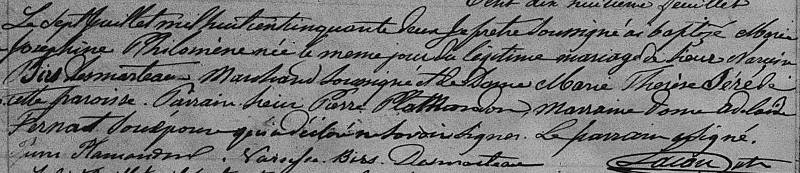 Cent dix huitieme feuillet
Le sept Juillet mil huit cent cinquante deux Je pretre soussigné ai baptisé Marie
Josephine Philomène née le même jour du légitime mariage de Sieur Narcisse
Birs Desmarteau Marchand soussigné et de Dame Marie Therèse Séré de
cette paroisse. Parrain Sieur Pierre Plathmondon, marraine dame Adelaide
Pernant son épouse qui a déclaré ne savoir signer. Le parrain a signé.
Plamondon. Narcisse Birs. Desmarteau